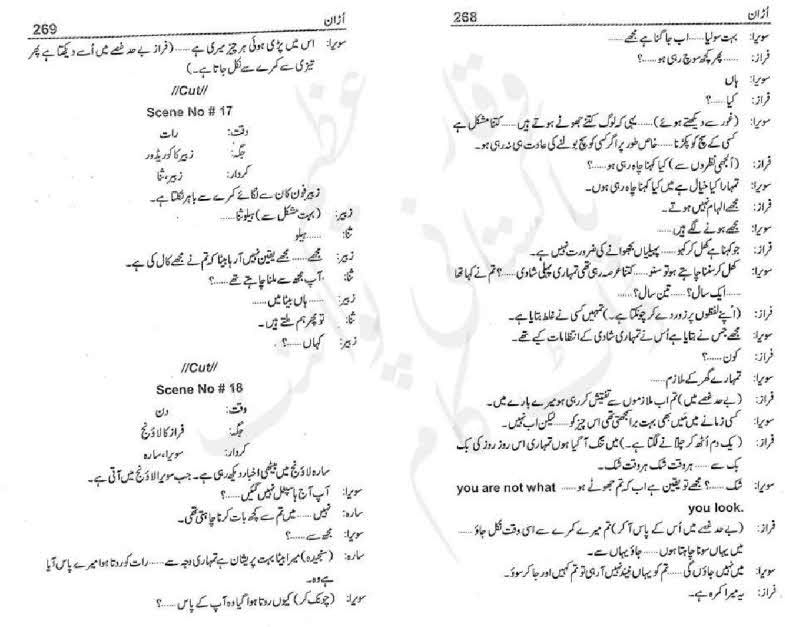 268
اُڑان
سویرا: بہت سولیا......اب جاگنا ہے مجھے......
فراز: ......پھر کچھ سوچ رہی ہو......؟
سویرا: ہاں
فراز: کیا......؟
سویرا: (غور سے دیکھتے ہوئے)......یہی کہ لوگ کتنے جھوٹے ہوتے ہیں......کتنا مشکل ہے
کسی کے سچ کو پکڑنا......خاص طور پر اگر کسی کو سچ بولنے کی عادت ہی نہ رہی ہو۔
فراز: (اُلجھی نظروں سے) کیا کہنا چاہ رہی ہو......؟
سویرا: تمہارا کیا خیال ہے میں کیا کہنا چاہ رہی ہوں۔
فراز: مجھے الہام نہیں ہوتے۔
سویرا: مجھے ہونے لگے ہیں......
فراز: جو کہنا ہے کھل کر کہو......پہیلیاں بجھوانے کی ضرورت نہیں ہے۔
سویرا: کھل کر سننا چاہتے ہو تو سنو......کتنا عرصہ رہی تھی تمہاری پہلی شادی......؟ تم نے کہا تھا
......ایک سال؟......تین سال؟......
فراز: (اپنے لفظوں پر زور دے کر چونکتا ہے۔) تمہیں کسی نے غلط بتایا ہے۔
سویرا: مجھے جس نے بتایا ہے اُس نے تمہاری شادی کے انتظامات کیے تھے۔
فراز: کون......؟
سویرا: تمہارے گھر کے ملازم......
فراز: (بے حد غصے میں) تم اب ملازموں سے تفتیش کر رہی ہو میرے بارے میں۔
سویرا: کسی زمانے میں مَیں بھی بہت برا سمجھتی تھی اس چیز کو......لیکن اب نہیں۔
فراز: (یک دم اُٹھ کر چلانے لگتا ہے۔) میں تنگ آ گیا ہوں تمہاری اس روز روز کی بک
بک سے......ہر وقت شک ہر وقت شک۔
سویرا: شک......؟ مجھے تو یقین ہے اب کہ تم جھوٹے ہو...... you are not what
you look.
فراز: (بے حد غصے میں اُس کے پاس آ کر) تم میرے کمرے سے اسی وقت نکل جاؤ......
میں یہاں سونا چاہتا ہوں......جاؤ یہاں سے۔
سویرا: میں نہیں جاؤں گی......تم کو یہاں نیند نہیں آ رہی تو تم کہیں اور جا کر سوؤ۔
فراز: یہ میرا کمرہ ہے۔
269
اُڑان
سویرا: اس میں پڑی ہوئی ہر چیز میری ہے......(فراز بے حد غصے میں اُسے دیکھتا ہے پھر
تیزی سے کمرے سے نکل جاتا ہے۔)
//Cut//
Scene No # 17
وقت: رات
جگہ: زبیر کا کوریڈور
کردار: زبیر، ثنا
زبیر فون کان سے لگائے کمرے سے باہر نکلتا ہے۔
زبیر: (بہت مشکل سے) ہیلو ثنا......
ثنا: ......ہیلو
زبیر: مجھے......مجھے یقین نہیں آ رہا بیٹا کہ تم نے مجھے کال کی ہے۔
ثنا: آپ مجھ سے ملنا چاہتے تھے......؟
زبیر: ......ہاں بیٹا میں......
ثنا: تو پھر ہم ملتے ہیں۔
زبیر: کہاں......؟
//Cut//
Scene No # 18
وقت: دن
جگہ: فراز کا لاؤنج
کردار: سویرا، سارہ
سارہ لاؤنج میں بیٹھی اخبار دیکھ رہی ہے۔ جب سویرا لاؤنج میں آتی ہے۔
سویرا: آپ آج ہاسپٹل نہیں گئیں......؟
سارہ: نہیں......میں تم سے کچھ بات کرنا چاہتی تھی۔
سویرا: مجھ سے......؟
سارہ: (سنجیدہ) میرا بیٹا بہت پریشان ہے تمہاری وجہ سے......رات کو روتا ہوا میرے پاس آیا
ہے وہ۔
سویرا: (چونک کر) کیوں روتا ہوا گیا وہ آپ کے پاس......؟